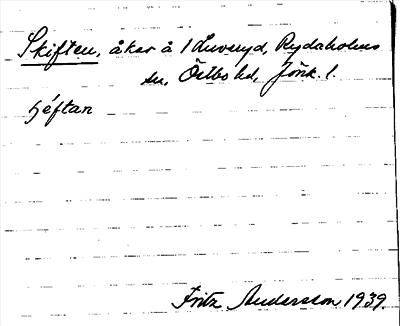 Skiften, åker å 1 Huveryd, Rydaholms
sn, Östbo hd, Jönk. l.
héftan
Fritz Andersson 1939.